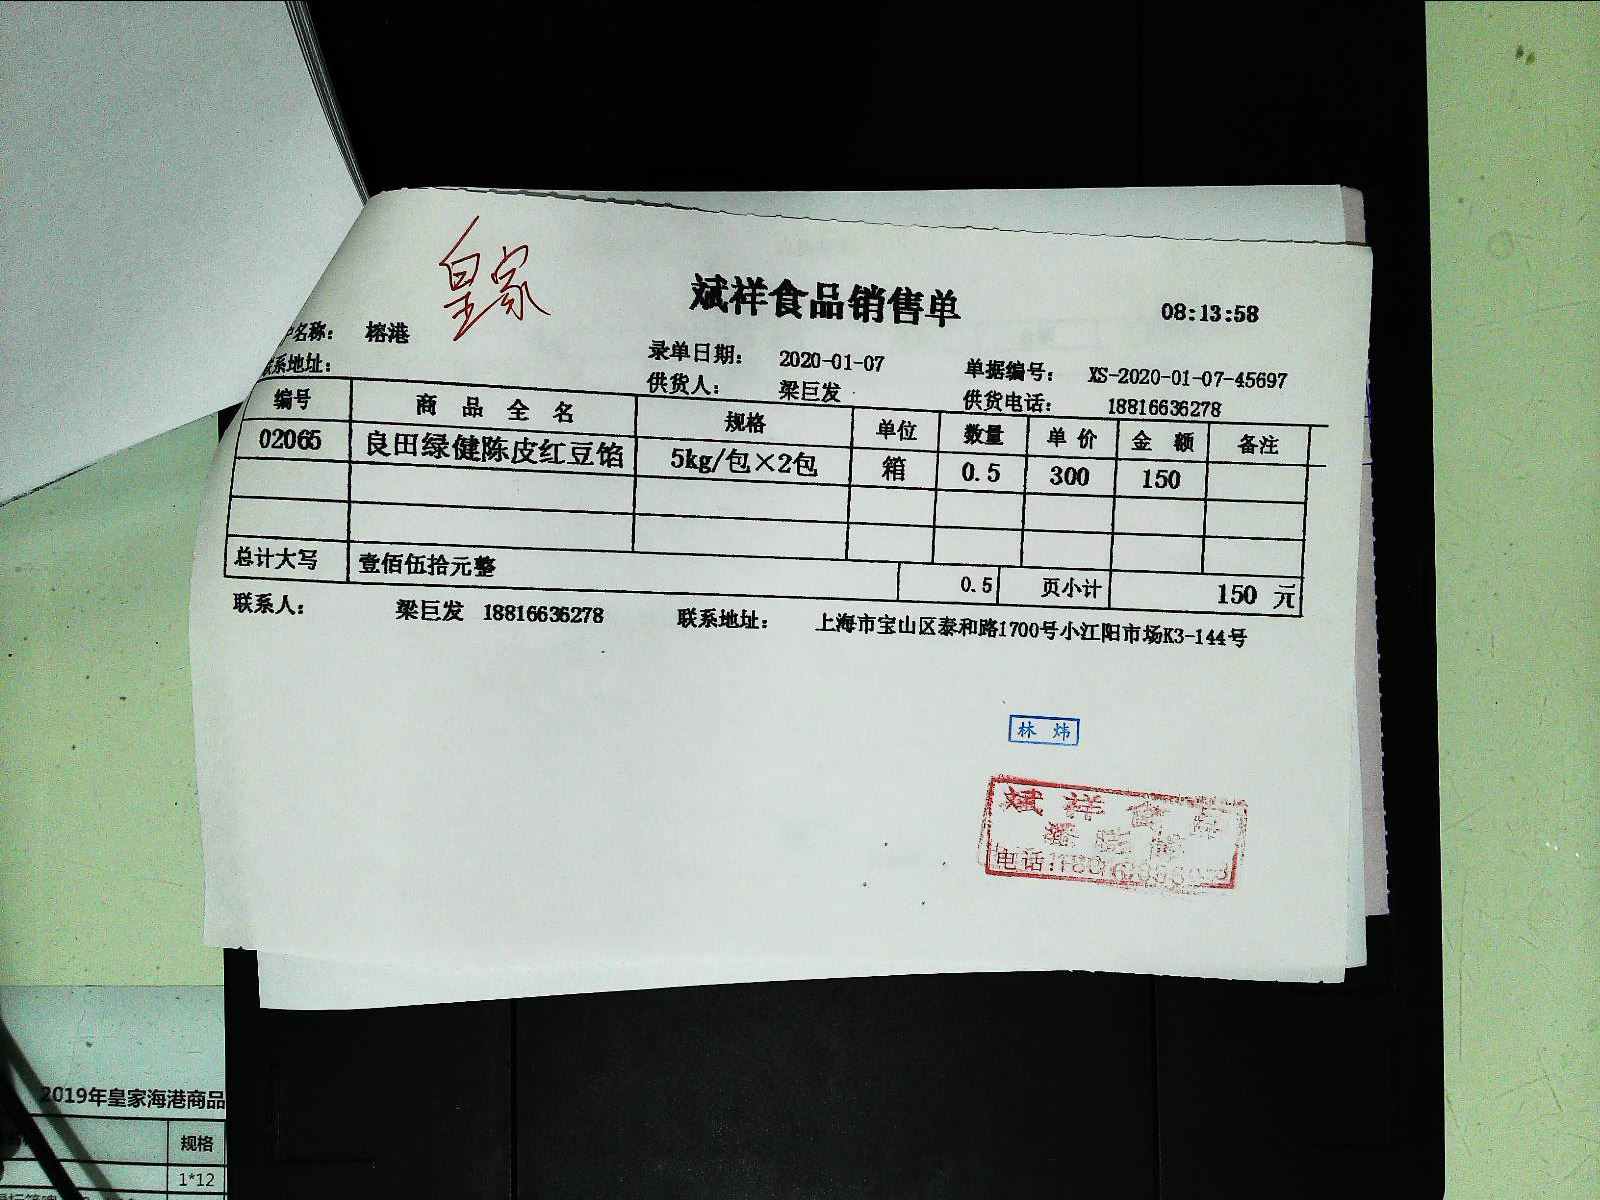 皇家
斌祥食品销售单
08:13:58
户名称: 榕港
联系地址:
录单日期: 2020-01-07
单据编号: XS-2020-01-07-45697
供货人: 梁巨发
供货电话: 18816636278
编号 商品全名 规格 单位 数量 单价 金额 备注
02065 良田绿健陈皮红豆馅 5kg/包×2包 箱 0.5 300 150
总计大写 壹佰伍拾元整 0.5 页小计 150 元
联系人: 梁巨发 18816636278 联系地址: 上海市宝山区泰和路1700号小江阳市场K3-144号
林炜
斌祥食品
电话:
2019年皇家海港商品
规格
1*12